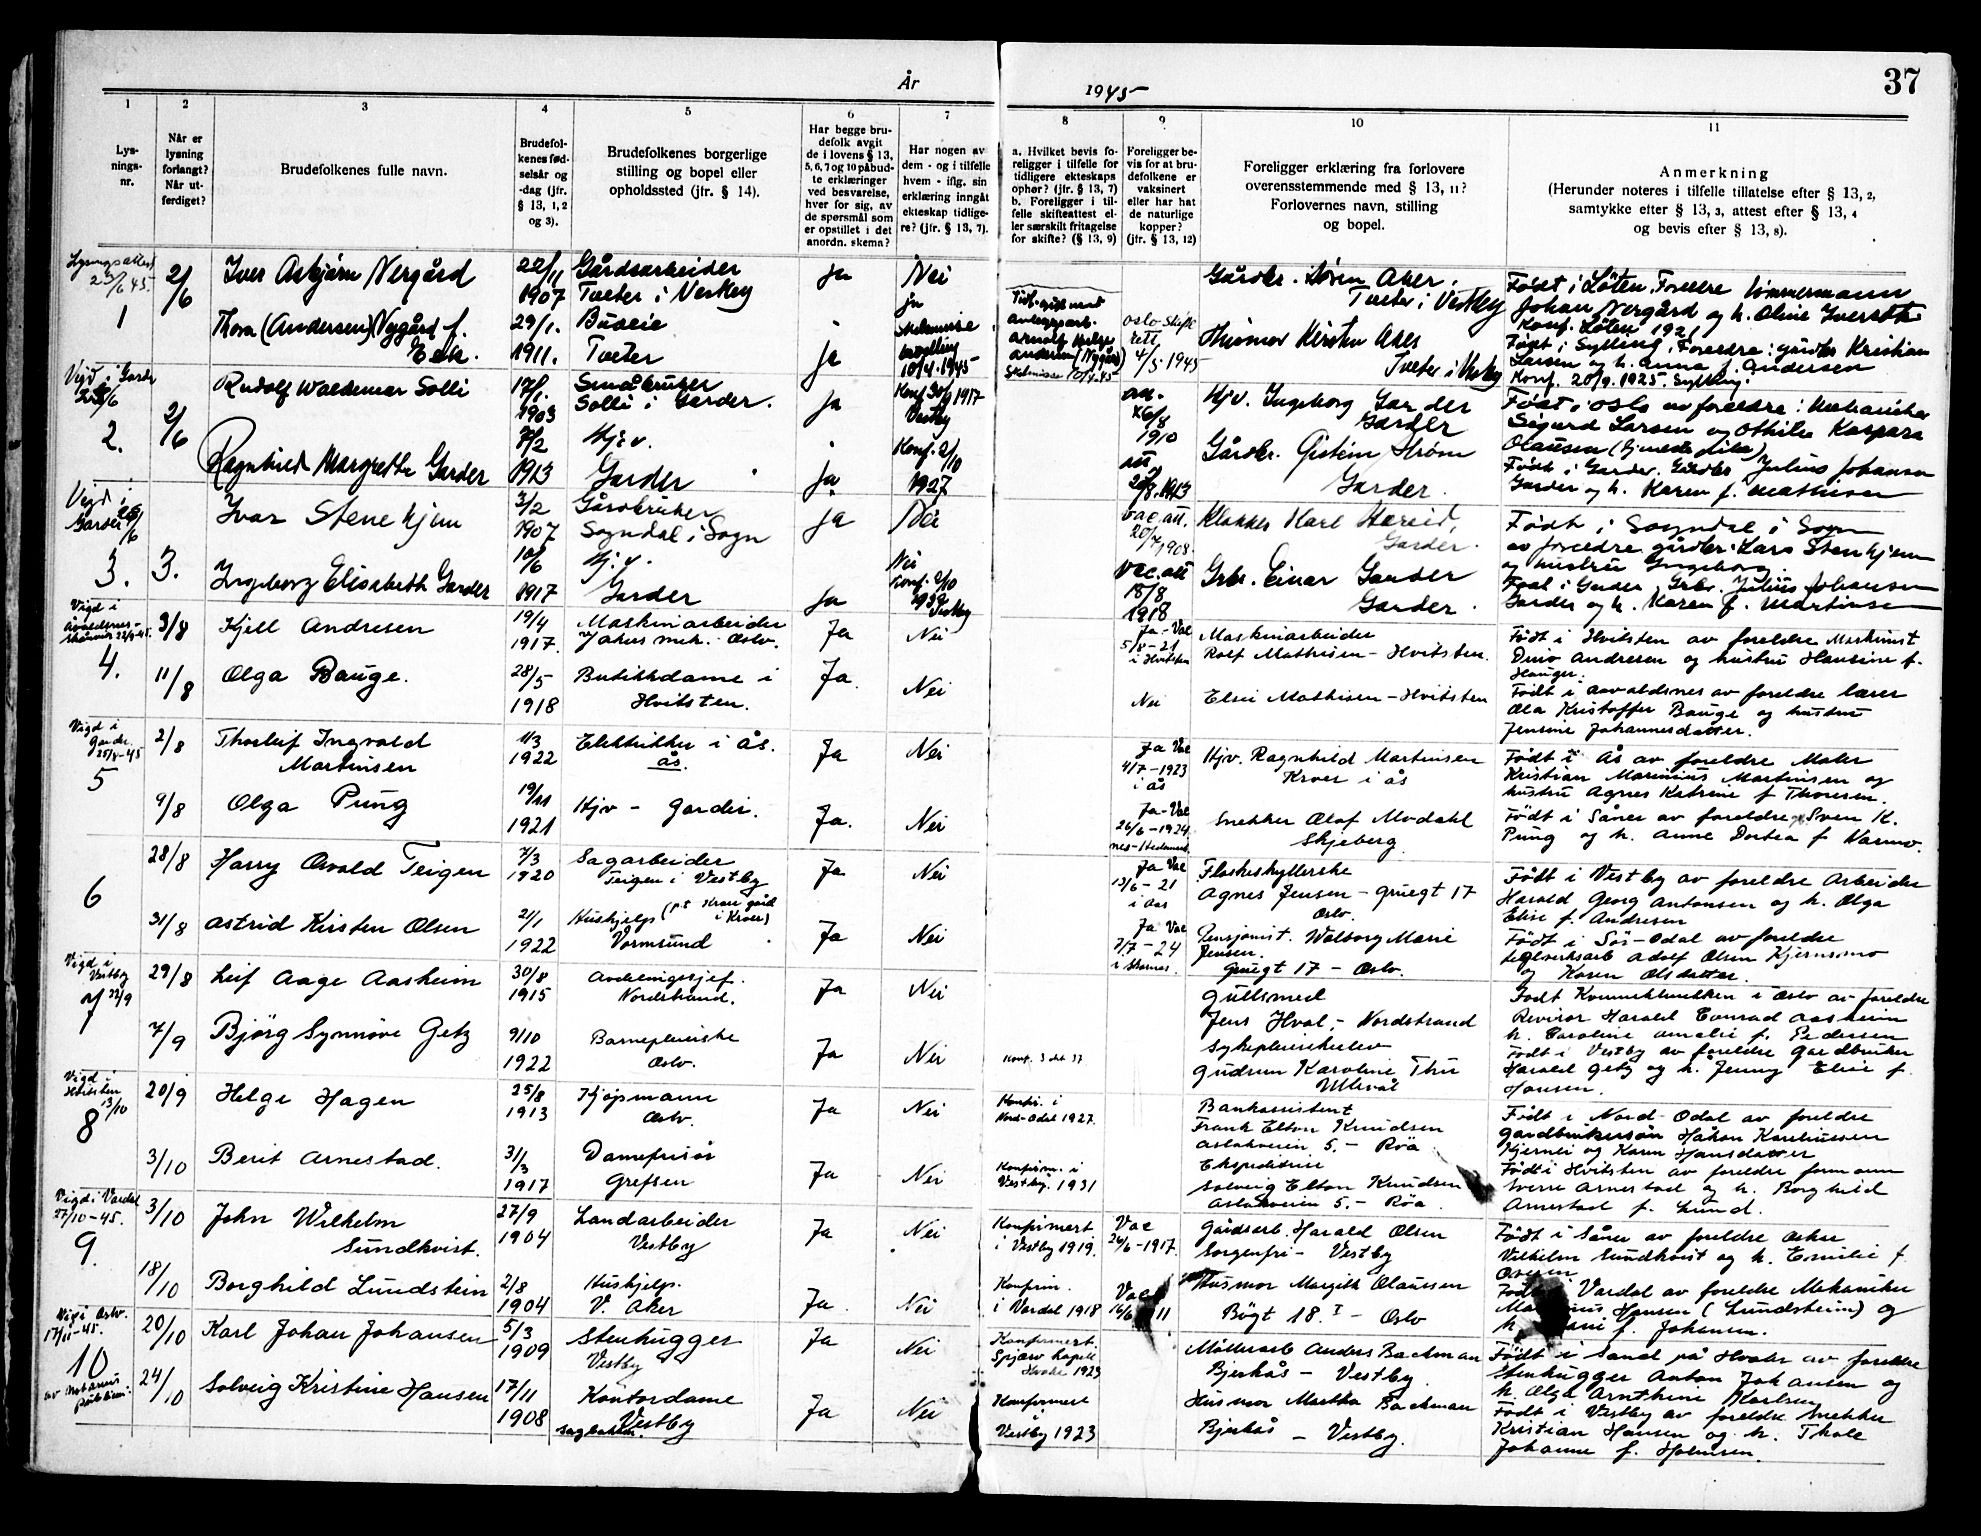 År
1945
37
1
2
3
4
5
6
7
8
9
10
11
Lysningsnr.
Når er lysning forlangt? Når utferdiget?
Brudefolkenes fulle navn.
Brudefolkenes fødselsår og -dag (jfr. § 13, 1, 2 og 3).
Brudefolkenes borgerlige stilling og bopel eller opholdssted (jfr. § 14).
Har begge brudefolk avgit de i lovens § 13, 5, 6, 7 og 10 påbudte erklæringer ved besvarelse, hver for sig, av de spørsmål som er opstillet i det anordn. skema?
Har nogen av dem - og i tilfelle hvem - iflg. sin erklæring inngåt ekteskap tidligere? (jfr. § 13, 7).
a. Hvilket bevis foreligger i tilfelle for tidligere ekteskaps ophør? (jfr. § 13, 7) b. Foreligger i tilfelle skifteattest eller særskilt fritagelse for skifte? (§ 13, 9)
Foreligger bevis for at brudefolkene er vaksinert eller har hat de naturlige kopper? (jfr. § 13, 12)
Foreligger erklæring fra forlovere overensstemmende med § 13, 11? Forlovernes navn, stilling og bopel.
Anmerkning (Herunder noteres i tilfelle tillatelse efter § 13, 2, samtykke efter § 13, 3, attest efter § 13, 4 og bevis efter § 13, 8).
Lysingsattest 23/6 45.
1
2/6
Iver Asbjørn Nergård
22/11 1907
Gårdsarbeider
Tveter i Vestby
Ja
Nei
Gårdbr. Søren Aker,
Tveter i Vestby
Født i Løten. Foreldre tømmermann
Johan Nergård og h. Oline Iversdtr
Konf. Løten 1921
Thora (Andersen) Nygård f.
Eek.
29/1. 1911.
Buseie
Tveter
ja
ja
skilsmisse
bevilling
10/4. 1945
Arnolf Helge
Andersen (Nygård)
Skilsmisse 10/4.45
Oslo Skifterett
4/5 1945
Husmor Kirsten Aker
Tveter i Vestby
Født i Sylling. Foreldre: gårdbr Kristian
Larsen og h. Anna f. Andersen
Konf. 20/9. 1925. Sylling.
Vigd i Garder
2.
2/6
Rudolf Waldemar Solli
17/1. 1903
Småbruker
Solli i Garder.
ja
Konf 30/9 1917
Vestby
att. 26/8 1910
Hjv. Ingeborg Garder
Garder
Født i Oslo av foreldre: Mekaniker
Sigurd Larsen og Othilie Kaspara
Olausen
Ragnhild Margrethe Garder
7/2 1913
Hj.v.
Garder
ja
Konf. 2/10
1927
att
Gårdbr. Gistein Strøm
Garder.
Født i Garder. Gårdbr Julius Johansen
Garder og h. Karen f. Mathisen
Vigd i
Garder
3.
3.
Ivar Stenehjem
3/2 1907
Gårdbruker
Sogndal i Sogn
ja
Nei
vac att.
20/7 1908.
Klokker Karl Hereid,
Garder.
Født i Sogndal i Sogn
av foreldre gårdbr. Lars Stenehjem
og hustru Ingeborg.
Ingeborg Elisabeth Garder
10/6 1917
Hj.v.
Garder
ja
Nei
Konf. 2/10
1932
Vestby
Vac. att
18/8
1918
Grbr. Einar Garder
Garder.
Født i Garder. Grbr. Julius Johansen
Garder og h. Karen f. Martinsen
Vigd i
Avaldsnes-
4.
3/8
Kjell Andresen
19/4 1917.
Maskinarbeider
Jakus mek. Oslo.
Ja
Nei
Ja - Vac
5/8 - 21
i Hvitsten
Maskinarbeider
Rolf Mathisen - Hvitsten.
Født i Hvitsten av foreldre Maskinist
Andresen og hustru Hansine f.
Hauger.
11/8
Olga Bauge.
28/5 1918
Butikkdame i
Hvitsten.
Ja.
Nei
Nei
Elsie Mathisen - Hvitsten
Født i Aavaldsnes av foreldre lærer
Ola Kristoffer Bauge og hustru
Jensine Johannesdatter.
Vigd i
Garder.
25/8-45
5
2/8
Thorleif Ingvald
Martinsen
1/3 1922
Elektriker i Ås.
Ås
Ja
Nei
Ja Vac
4/7 - 1923
i Ås
Hjv. Ragnhild Martinsen
Kroer i Ås
Født i Ås av foreldre Maler
Kristian Marinius Martinsen og
hustru Agnes Katrine f Thoresen.
9/8
Olga Pung
19/11 1921
Hjv - Garder.
Ja.
Nei
Ja - Vac
26/6 - 1924
Snekker Olaf Modahl
Skjeberg
Født i Såner av foreldre Sven K.
Pung og h. Anne Dortea f Varmo.
6
28/8
Harry Osvald Teigen
7/3 1920
Sagarbeider
Teigen i Vestby
Ja
Nei
Ja Vac
13/6 - 21
i Aas
Flaskeskyllerske
Agnes Jensen - Gruegt 17
Oslo.
Født i Vestby av foreldre Arbeider
Harald Georg Antonsen og h. Olga
Elise f. Andresen
31/8
Astrid Kirsten Olsen
21/1 1922
Hushjelp (p.t Kroer gård
i Kroer)
Vormsund
Ja
Nei
Ja Vac
7/7 - 24
i Skarnes.
Pensjonist. Walborg Marie
Jensen.
Gruegt 17 - Oslo.
Født i Sør-Odal av foreldre
teglverksarb Adolf Olsen Kjernsmo
og Karen Olsdatter.
Vigd i
Vestby
22/9
7
29/8
Leif Aage Aasheim
30/8 1915
Avdelingssjef.
Nordstrand.
Ja
Nei
Gullsmed
Jens Hval, - Nordstrand
Født Kvinneklinikken i Oslo av foreldre
Revisor Harald Conrad Aasheim
h. Caroline Amalie f. Pedersen
7/9
Bjørg Synnøve Getz
9/10 1922
Barnepleierske
Oslo.
Ja
Nei
Konf. 3 okt 37
Sykepleierskeelev
Gudrun Karoline Thu
Ullevål
Født i Vestby av foreldre Gardbruker
Harald Getz og h. Jenny Elise f.
Hansen.
Vigd i
Hvitsten
13/10
8
20/9
Helge Hagen
25/8 1913
Kjøpmann
Oslo.
Ja
Nei
Konfir. i
Nord-Odal 1927.
Bankassistent
Frank Elton Knudsen
Aslakveien 5. - Røa
Født i Nord-Odal av foreldre
Gardbrukersøn Håkon Korneliussen
Kjernli og Karen Hansdatter
3/10
Berit Arnestad.
31/3 1917
Damefrisør
Grefsen
Ja
Nei
Konfirm. i
Vestby 1931
Ekspeditrise
Solveig Elton Knudsen
Aslakveien 5. - Røa
Født i Hvitsten av foreldre formann
Sverre Arnestad og h. Borghild
Arnestad f. Lund.
Vigd i Vardal
27/10-45.
9.
3/10
John Wilhelm
Sundkvist.
27/9 1904
Landarbeider
Vestby
Ja
Nei
Konfirmert
i Vestby 1919.
Vac
26/6-1917.
Gårdsarb. Harald Olsen
Sorgenfri - Vestby
Født i Såner av foreldre
Vilhelm Sundkvist og h. Emilie f.
18/10
Borghild Lundstein
2/8 1904
Hushjelp.
V. Aker
Ja.
Nei
Konfirm.
i Vardal 1918
Vac
16/6 11
Husmor Margith Olaussen
Bögt 18. I - Oslo
Født Vardal av foreldre Mekaniker
Hansen (Lundstein) og
h. f. Johansen.
Vigd i Oslo.
17/11-45.
10
av Notarius
publicus.
20/10
Karl Johan Johansen
5/3 1909
Stenhugger
Vestby
Ja
Nei
Konfirmert.
Spjær Kapell
Hvaler 1923
Møllerarb Anders Backman
Bjerkås - Vestby
Født i Sand på Hvaler av foreldre
Stenhugger Anton Johansen og
h. Olga Arnthine Karlsen
24/10
Solveig Kristine Hansen
17/11 1908
Kontordame
Vestby
Ja
Nei
Konfirmert
Vestby 1923
Husmor Martha Backman
Bjerkås - Vestby.
Født i Vestby av foreldre Snekker
Kristian Hansen og h. Thale
Johanne f. Halvorsen.